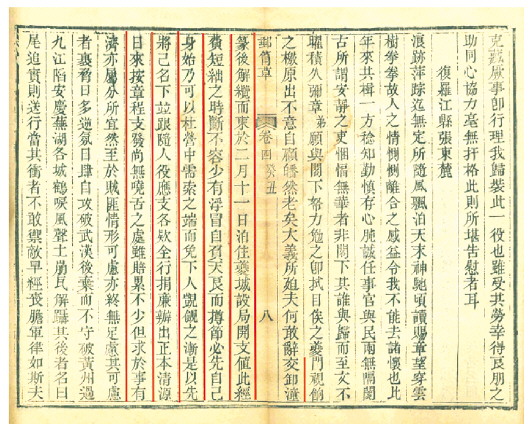 克蕆厥事卽行理我歸裝此一役也雖受其勞幸得良朋之
助同心協力毫無扞格此則所堪告慰者耳
復羅江縣張東麓
浪跡萍踪迄無定所隨風飄泊天末神馳頃讀賜章望穿雲
樹拳拳故人之情惻惻離合之感益令我不能去諸懷也比
年來共楫一方稔知勤慎存心肫誠任事官與民兩無隔閡
古所謂安靜之吏悃愊無華者非閣下其誰與歸而至文不
曜積久彌章弟願與閣下努力勉之卽拭目俟之夔門視餉
之檄原出不意自顧皤然老矣大義所迫夫何敢辭交卸潼
郵筒草 卷四 癸丑 八
篆後解纜而東於二月十一日泊住夔城設局開支值此經
費短絀之時斷不容少有浮冒自負天良而撙節必先自己
身始乃可以杜營中需索之端而免下人覬覦之漸是以先
將己名下並跟隨人役應支各欵全行捐廉辦出正本清源
日來按章程支發尚無嘵舌之處雖賠累不少但求於事有
濟亦屬分所宜然至於賊匪情形可慮亦終無足慮其可慮
者裹脅日多逆氛日肆自攻破武漢後棄而不守破黃州過
九江陷安慶蕪湖各城鶴唳風聲土崩瓦解躡其後者名曰
尾追實則送行當其衝者不敢禦敵早經喪膽軍律如斯夫